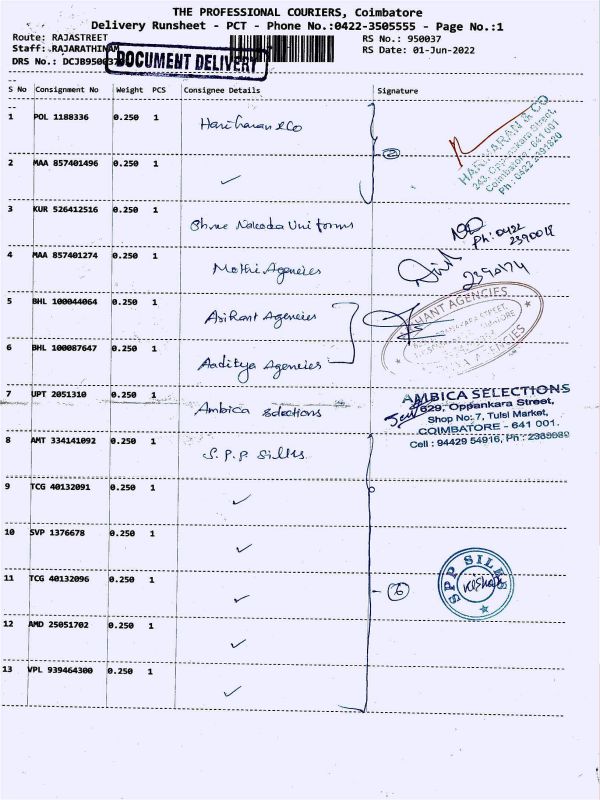 THE PROFESSIONAL COURIERS, Coimbatore
Delivery Runsheet - PCT - Phone No.:0422-3505555 - Page No.:1
Route: RAJASTREET RS No.: 950037
Staff: RAJARATHINAM RS Date: 01-Jun-2022
DRS No.: DCJB950037
DOCUMENT DELIVERY
S No Consignment No Weight PCS Consignee Details Signature
1 POL 1188336 0.250 1 Hariharan & Co
HARIHARAN & CO
243, Oppankara Street,
Coimbatore - 641 001
Ph : 0422 2391820
2 MAA 857401496 0.250 1 ✓ 2
3 KUR 526412516 0.250 1 Shree Nakoda Uniforms
Ph: 0422
2390018
4 MAA 857401274 0.250 1 Mothi Agencies
2390174
5 BHL 100044064 0.250 1 Arihant Agencies
6 BHL 100087647 0.250 1 Aaditya Agencies
7 UPT 2051310 0.250 1 Ambica Selections
AMBICA SELECTIONS
629, Oppankara Street,
Shop No: 7, Tulsi Market,
COIMBATORE - 641 001.
Cell : 94429 54916, Ph :
8 AMT 334141092 0.250 1 S.P.P Silks
9 TCG 40132091 0.250 1 ✓
10 SVP 1376678 0.250 1 ✓
11 TCG 40132096 0.250 1 ✓ 6
SPP SILKS
12 AMD 25051702 0.250 1 ✓
13 VPL 939464300 0.250 1 ✓